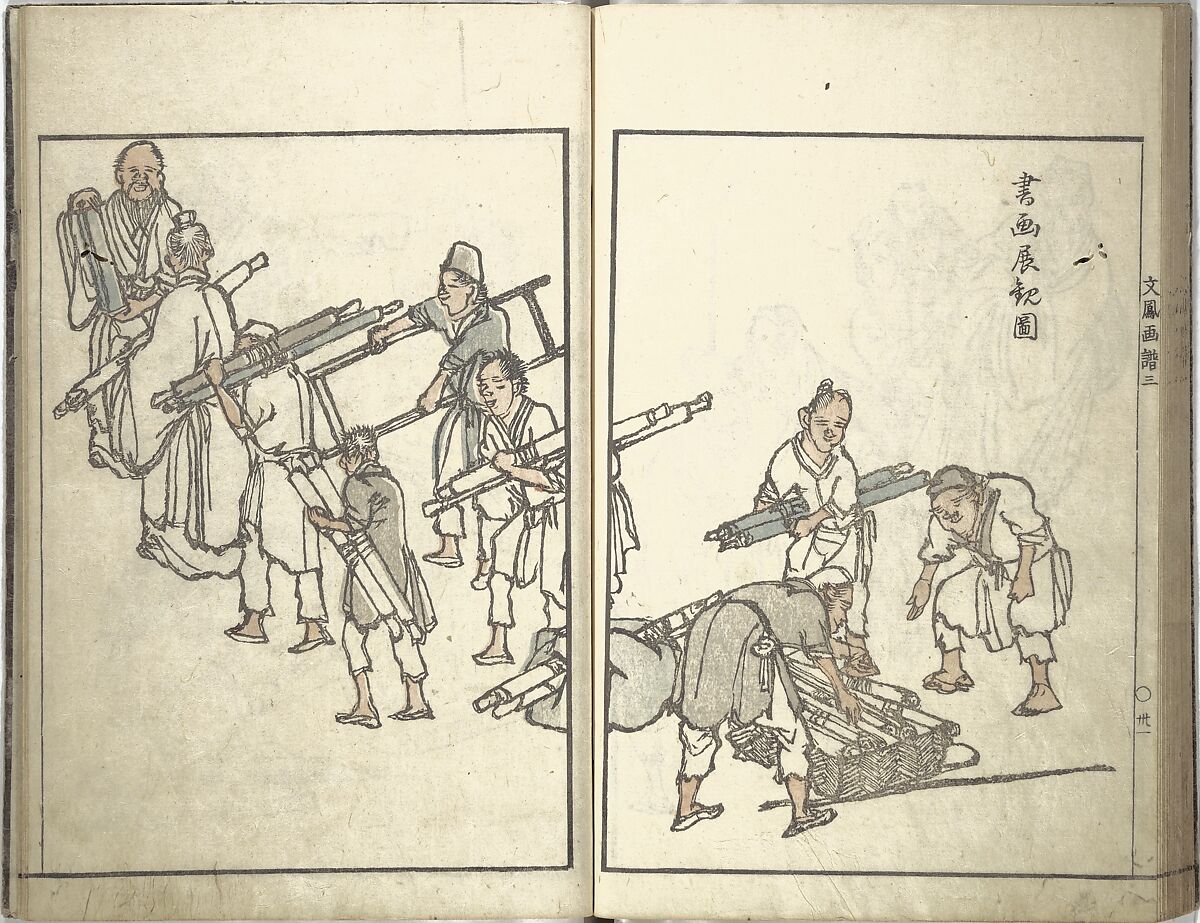 書画展観圖
文鳳画譜三
〇卅一